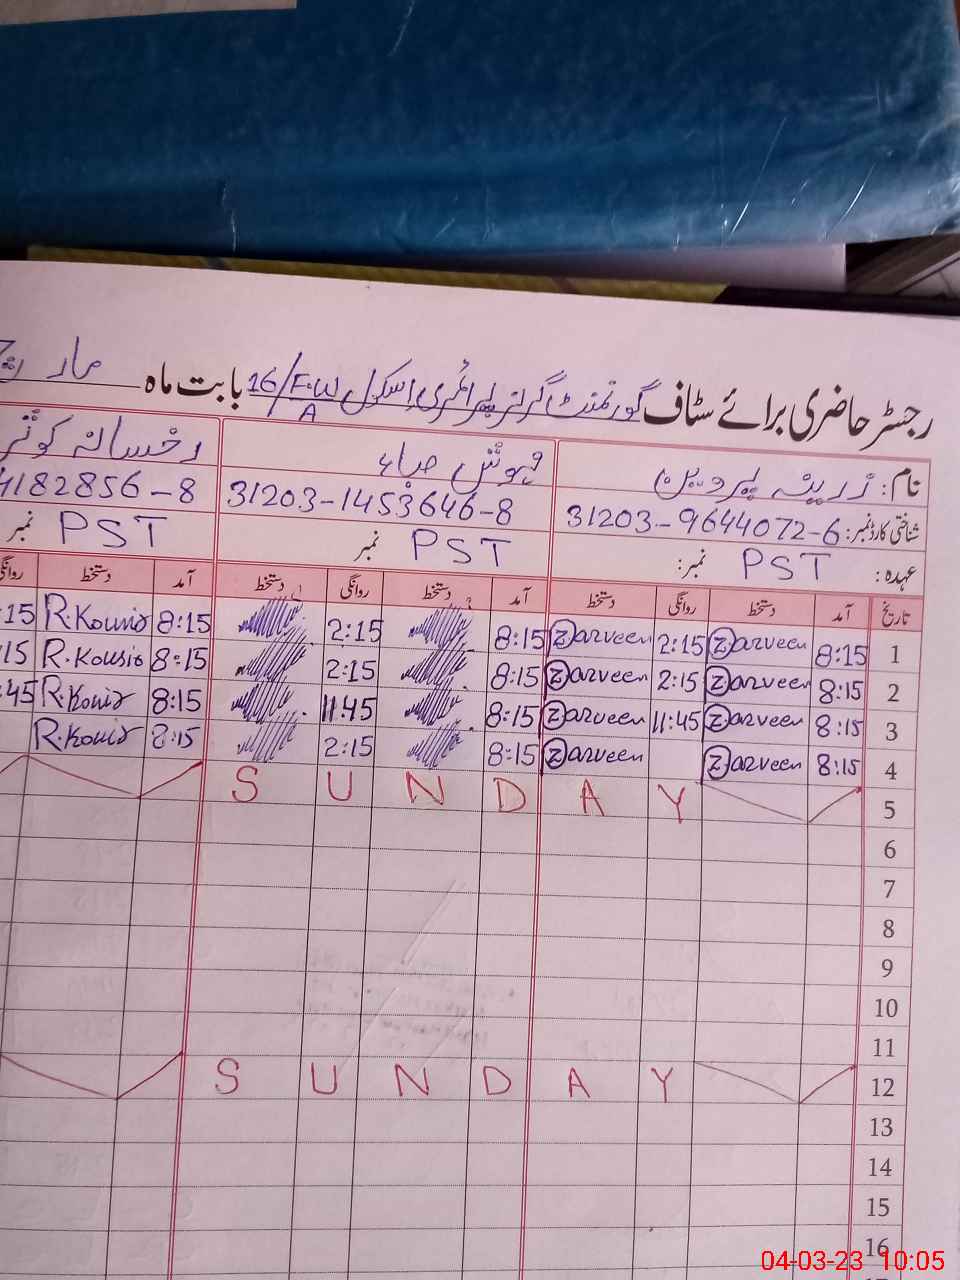 رجسٹر حاضری برائے سٹاف گورنمنٹ گرلز پرائمری اسکول 16/F.W/A بابت ماہ مارچ
نام: زرینہ پروین مہوش صباء رخسانہ کوثر
شناختی کارڈ نمبر: 31203-9644072-6 31203-1453646-8 4182856-8
عہدہ: PST نمبر: PST نمبر PST نمبر
تاریخ آمد دستخط روانگی دستخط آمد دستخط روانگی دستخط آمد دستخط روانگی
1 8:15 Zarveen 2:15 Zarveen 8:15 2:15 8:15 R.Kousir :15
2 8:15 Zarveen 2:15 Zarveen 8:15 2:15 8:15 R.Kousir :15
3 8:15 Zarveen 11:45 Zarveen 8:15 11:45 8:15 R.Kousir :45
4 8:15 Zarveen Zarveen 8:15 2:15 8:15 R.Kousir
5 SUNDAY
6
7
8
9
10
11
12 SUNDAY
13
14
15
16
04-03-23 10:05